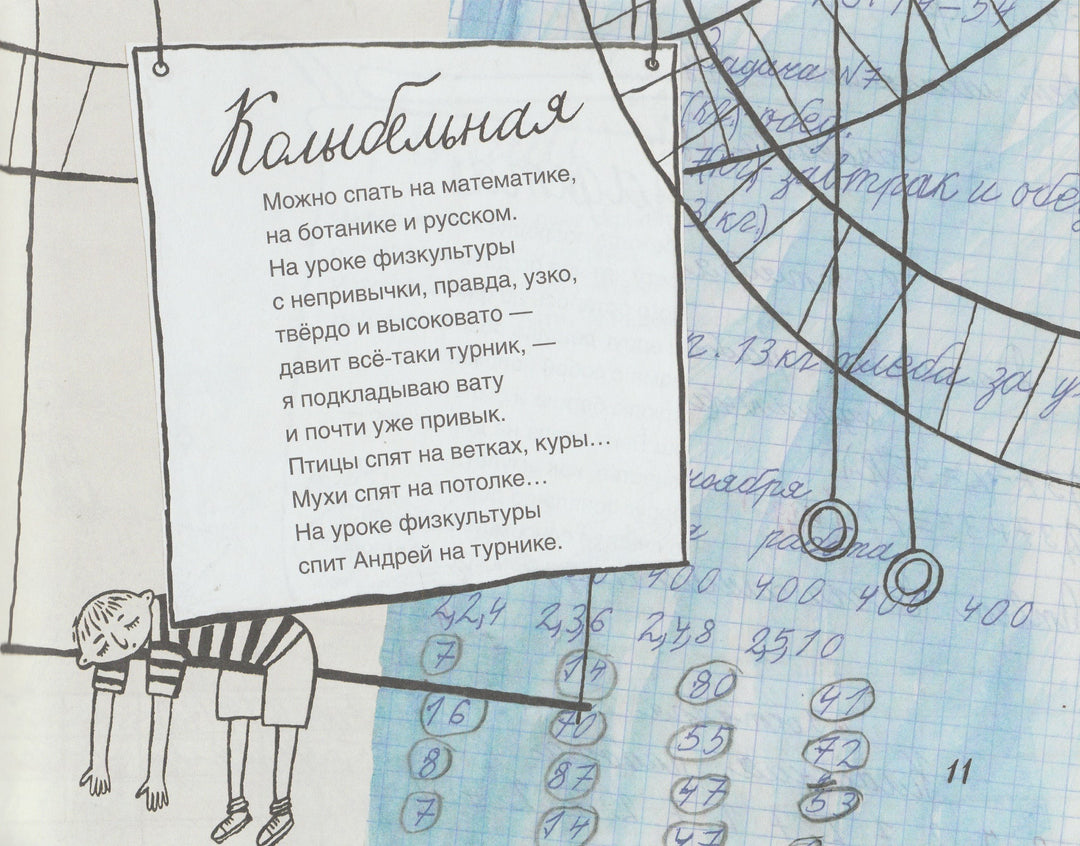 Колыбельная
Можно спать на математике,
на ботанике и русском.
На уроке физкультуры
с непривычки, правда, узко,
твёрдо и высоковато —
давит всё-таки турник, —
я подкладываю вату
и почти уже привык.
Птицы спят на ветках, куры…
Мухи спят на потолке…
На уроке физкультуры
спит Андрей на турнике.
Задача №7
(кг) обед.
завтрак и обе
3(кг)
г. 13 кг хлеба за у
ноября
работа
400 400 400 400
2,2,4 2,3,6 2,4,8 2,5,10
7 14 80 41
16 70 55 72
8 87 47 53
7 14 47
11